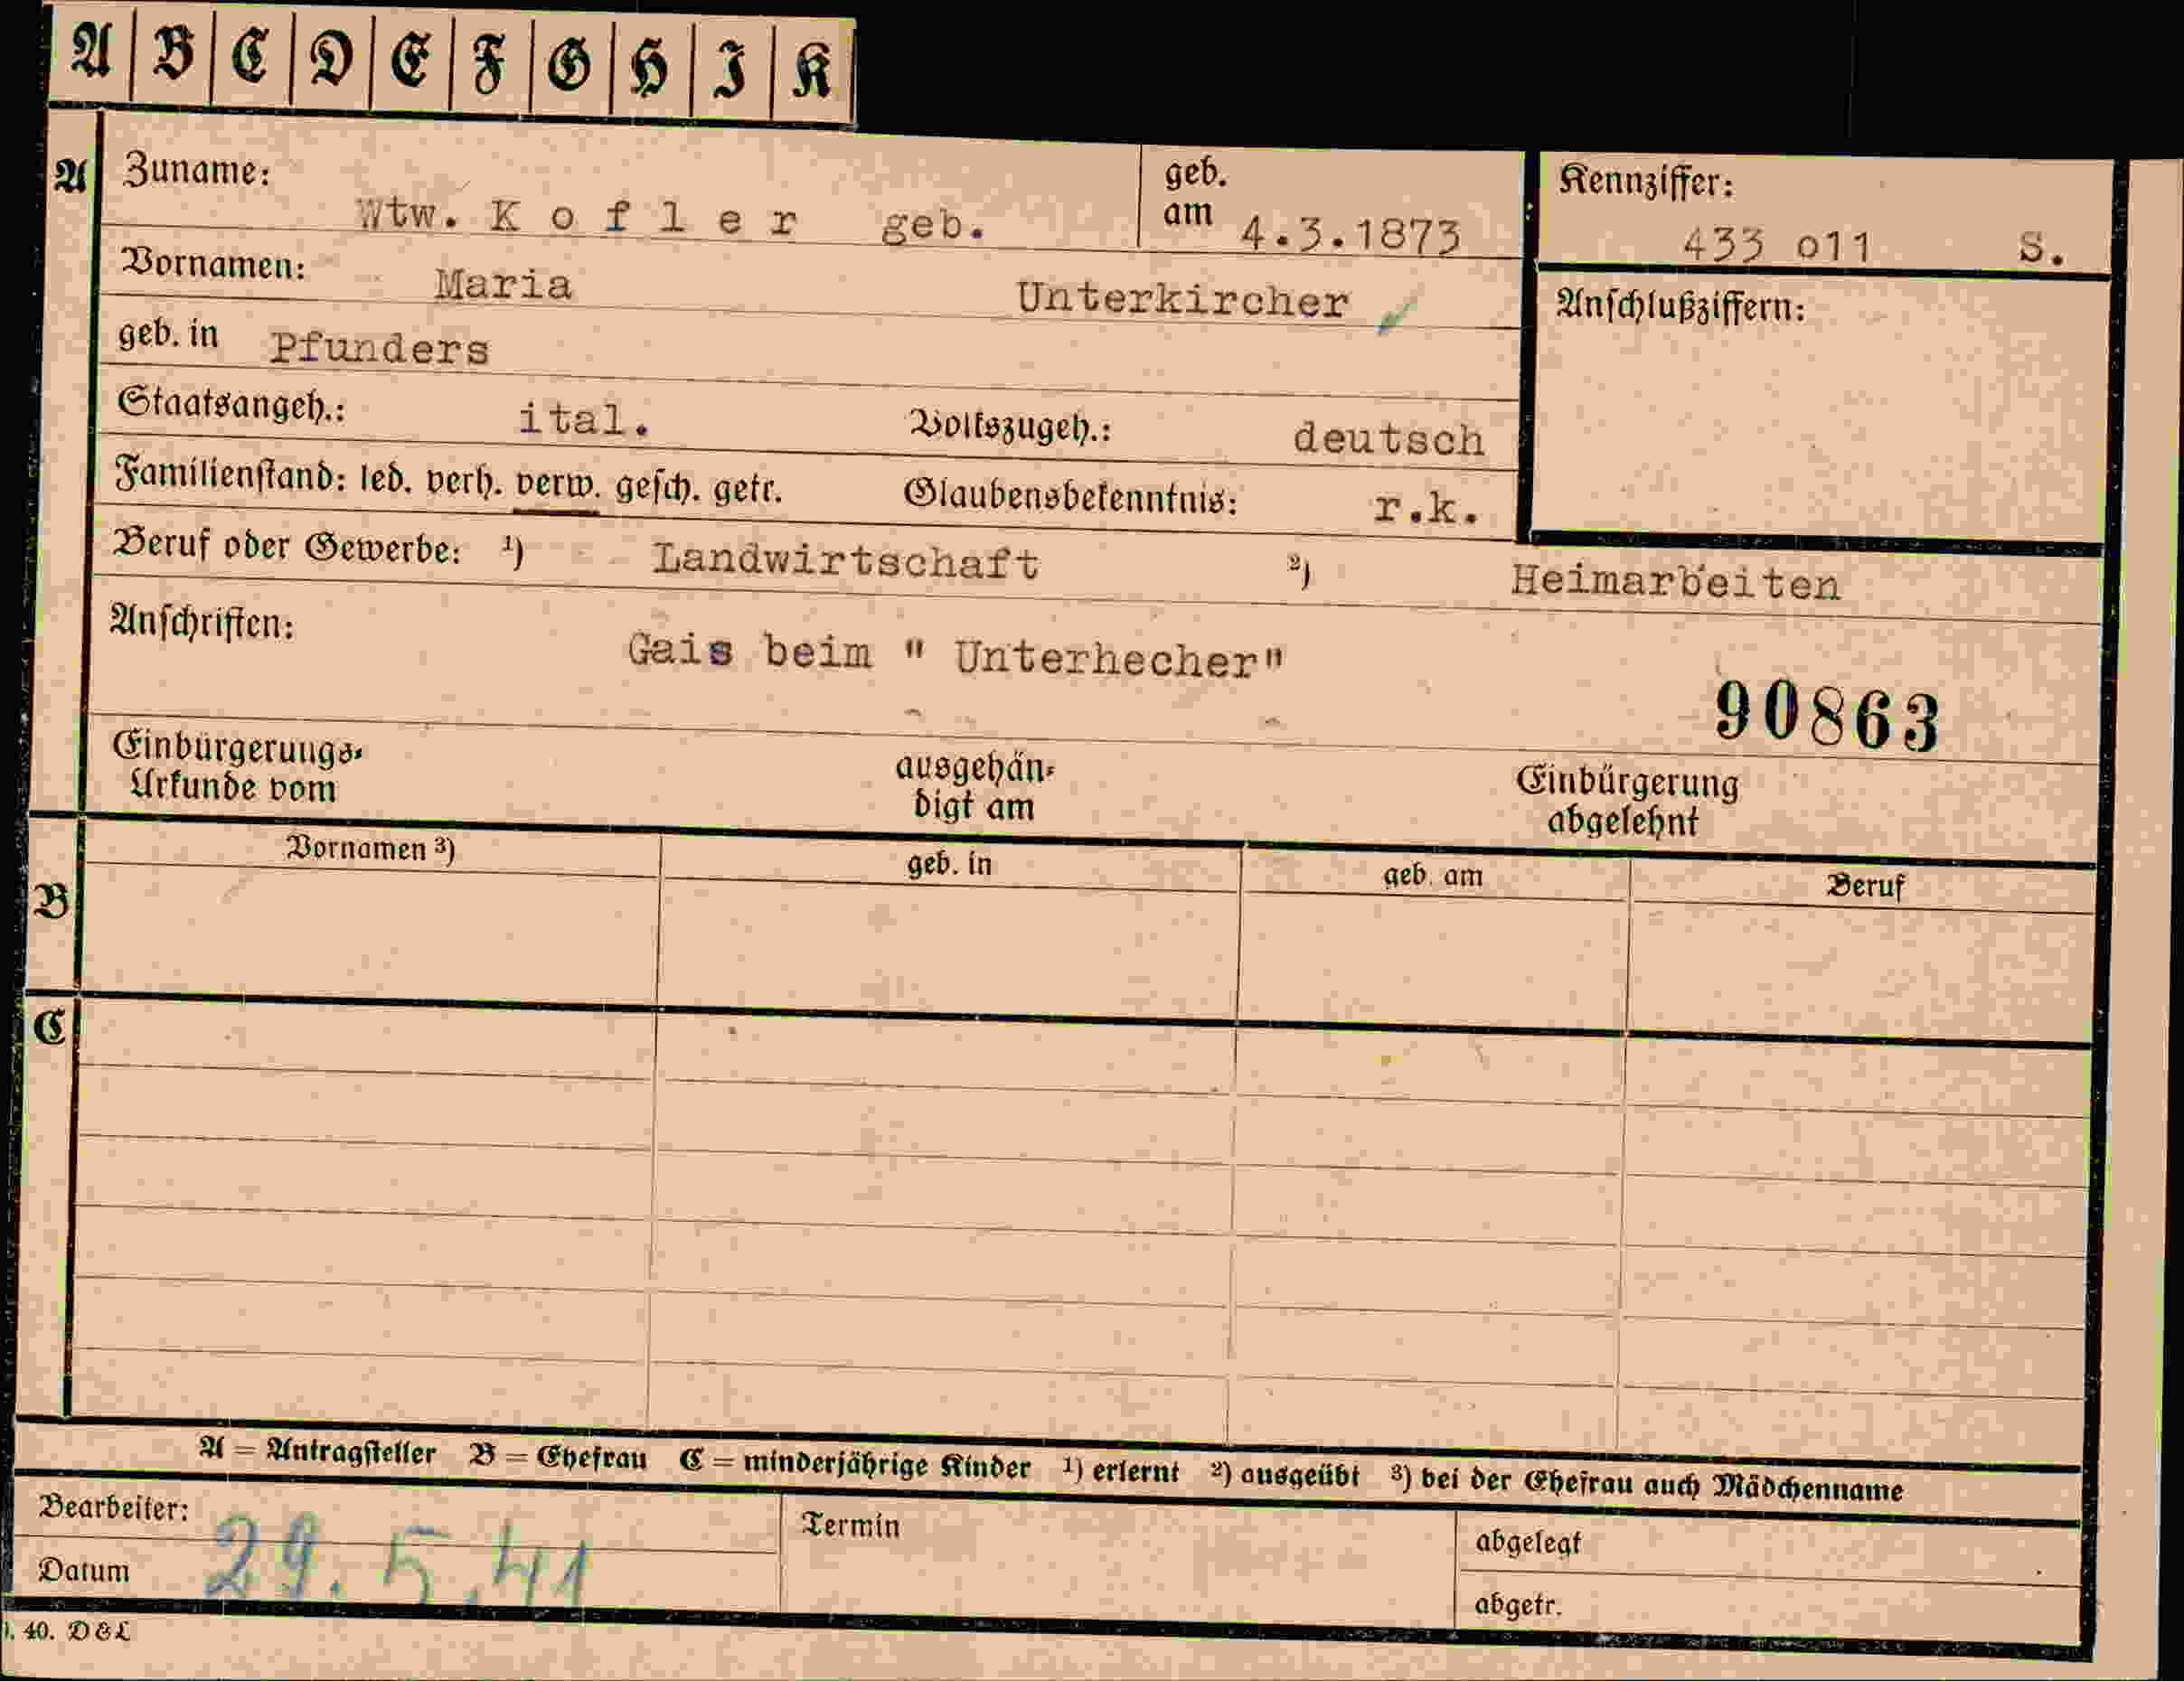 A B C D E F G H I K
A Zuname: Wtw. K o f l e r geb. geb. am 4.3.1873 Kennziffer: 433 o11 S.
Vornamen: Maria Unterkircher Anschlußziffern:
geb. in Pfunders
Staatsangeh.: ital. Volkszugeh.: deutsch
Familienstand: led. verh. verw. gesch. getr. Glaubensbekenntnis: r.k.
Beruf oder Gewerbe: ¹) Landwirtschaft ²) Heimarbeiten
Anschriften: Gais beim " Unterhecher"
90863
Einbürgerungs- ausgehän- Einbürgerung
Urkunde vom digt am abgelehnt
Vornamen ³) geb. in geb. am Beruf
B
C
A = Antragsteller B = Ehefrau C = minderjährige Kinder ¹) erlernt ²) ausgeübt ³) bei der Ehefrau auch Mädchenname
Bearbeiter: Termin abgelegt
Datum 29.5.41 abgetr.
40. D & L